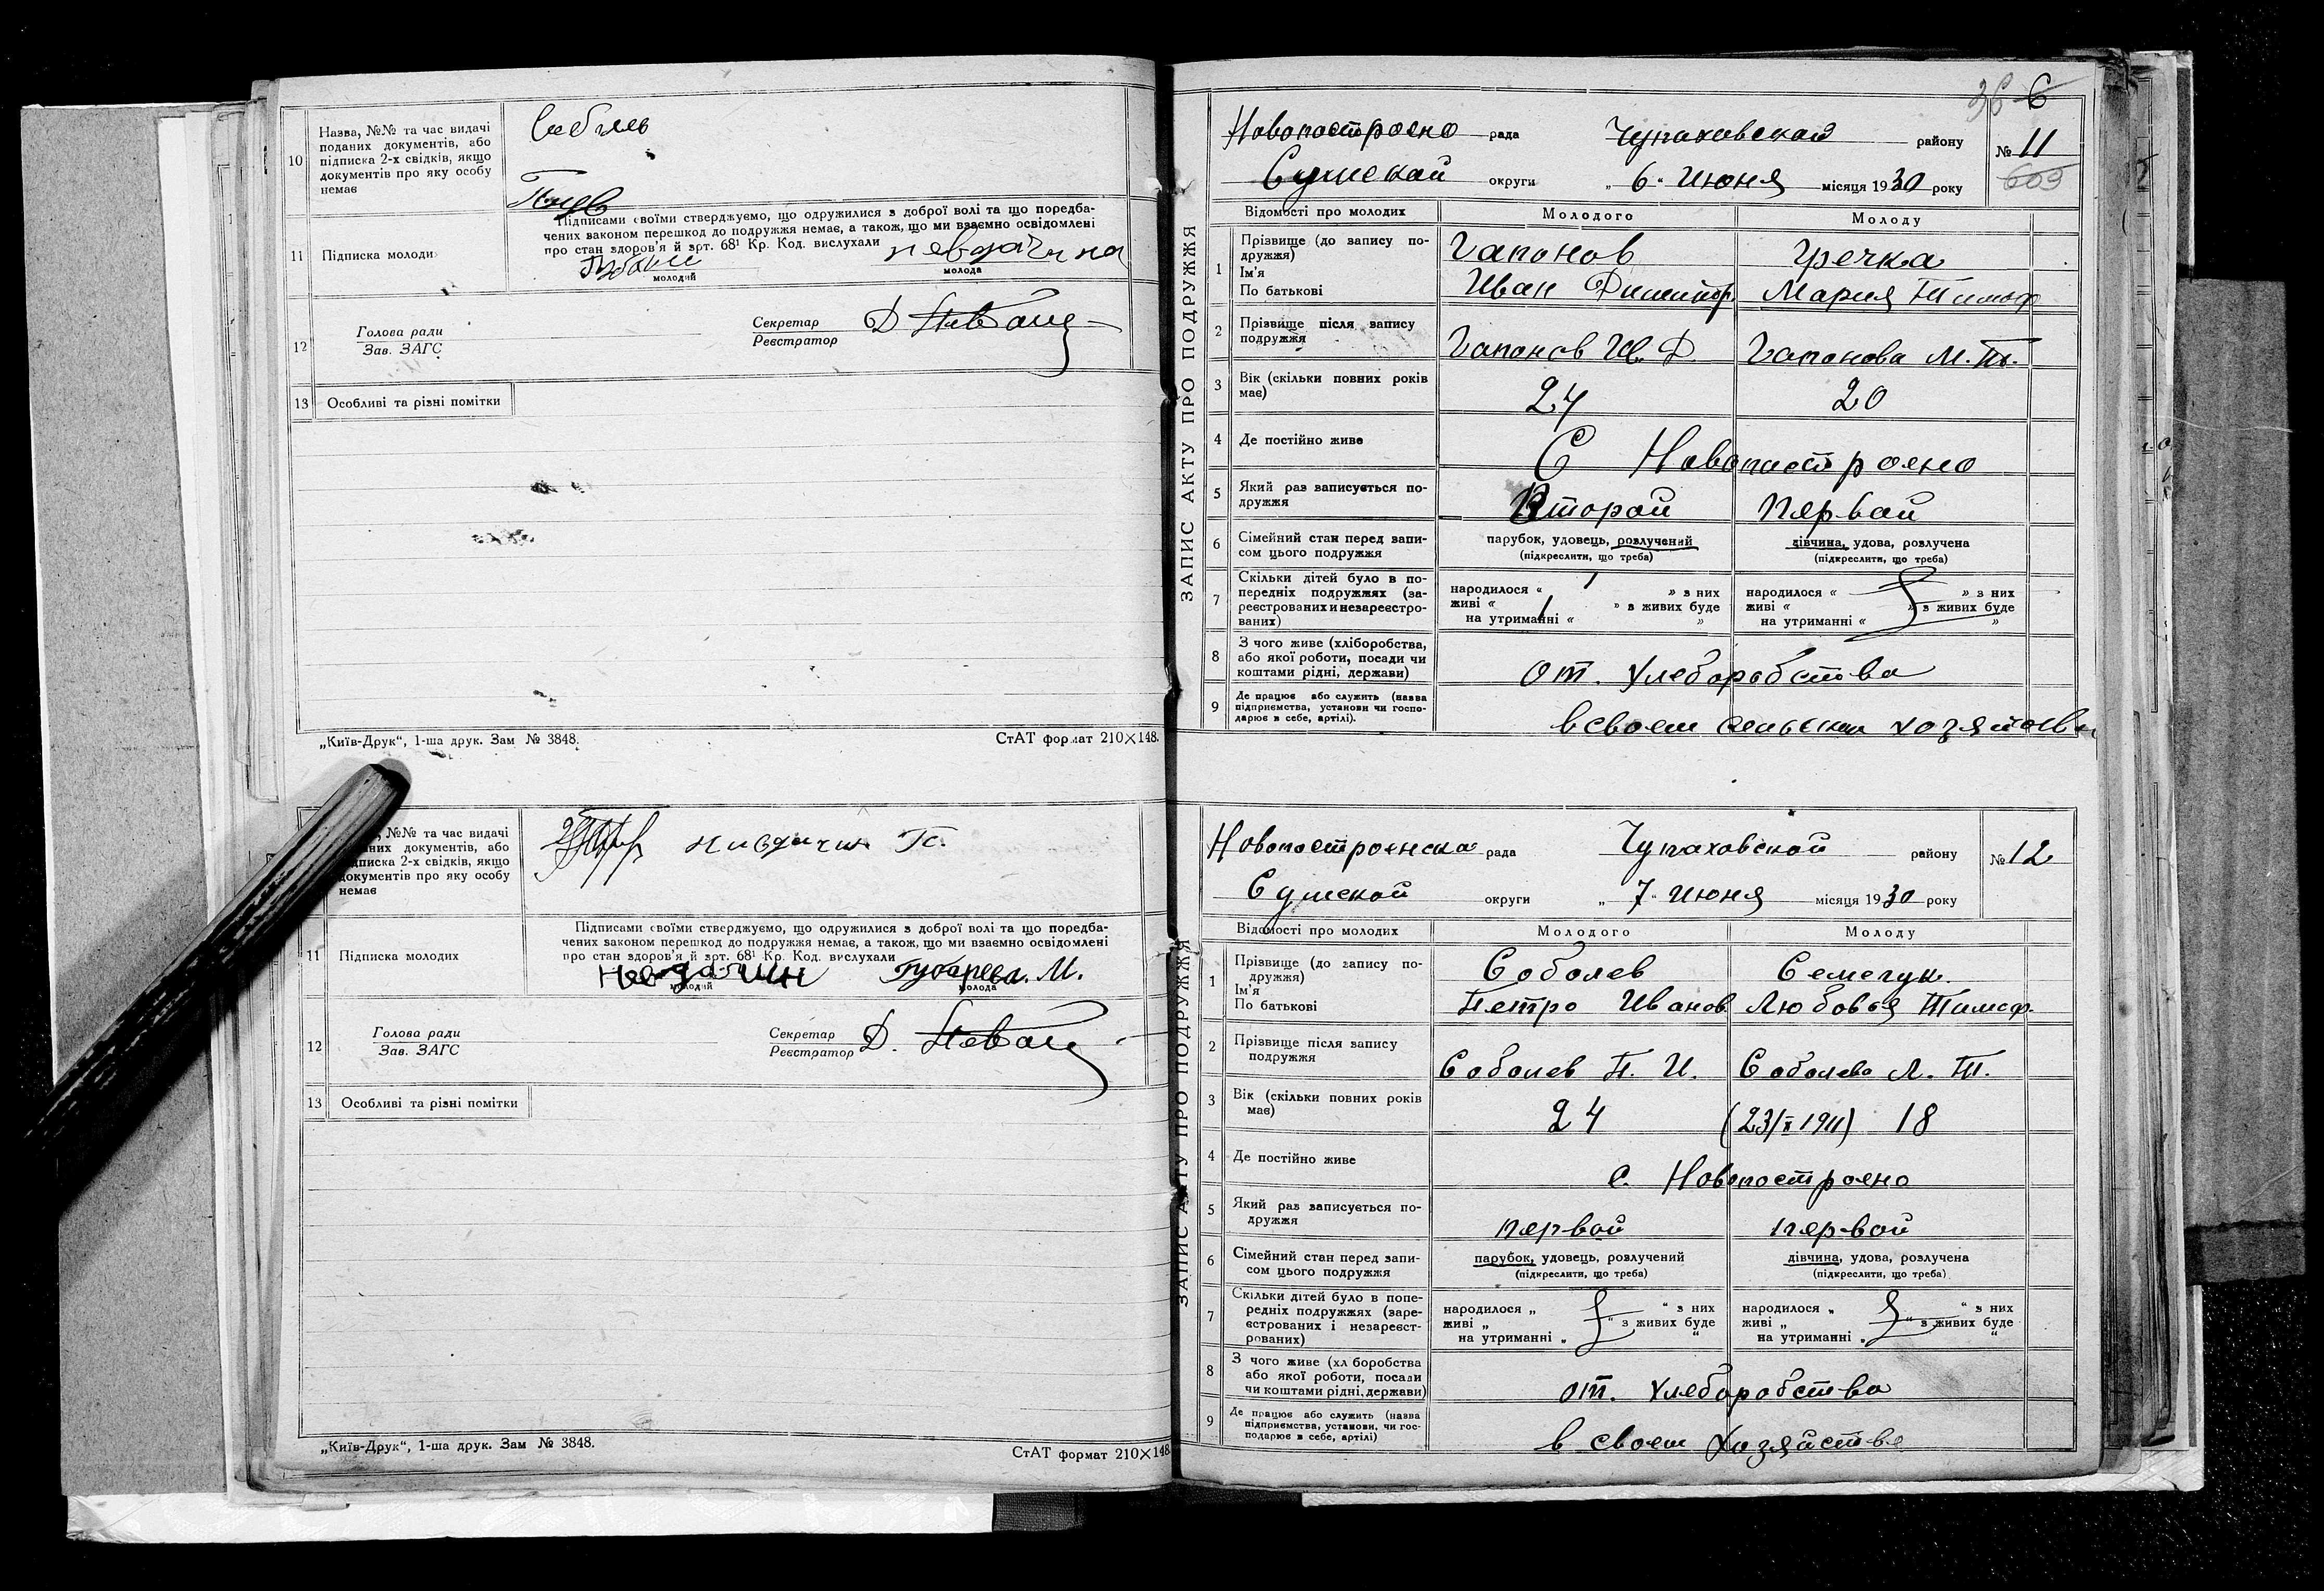 10
Назва, №№ та час видачі
поданих документів, або
підписка 2-х свідків, якщо
документів про яку особу
немає
11
Підписка молодих
Підписами своїми стверджуємо, що одружилися з доброї волі та що передба-
чених законом перешкод до подружжя немає, а також, що ми взаємно освідомлені
про стан здоров'я й арт. 68¹ Кр. Код. вислухали
молодий
молода
12
Голова ради
Зав. ЗАГС
Секретар
Реєстратор
Д.
13
Особливі та різні помітки
„Київ-Друк“, 1-ша друк. Зам № 3848.
СтАТ формат 210×148.
№№ та час видачі
документів, або
підписка 2-х свідків, якщо
документів про яку особу
немає
11
Підписка молодих
Підписами своїми стверджуємо, що одружилися з доброї волі та що передба-
чених законом перешкод до подружжя немає, а також, що ми взаємно освідомлені
про стан здоров'я й арт. 68¹ Кр. Код. вислухали
Губарева М.
молодий
молода
12
Голова ради
Зав. ЗАГС
Секретар
Реєстратор
Д.
13
Особливі та різні помітки
„Київ-Друк“, 1-ша друк. Зам № 3848.
СтАТ формат 210×148
36 6
ЗАПИС АКТУ ПРО ПОДРУЖЖЯ
Новопостроено рада Чупаховской району № 11
Сумской округи „6“ Июня місяця 1930 року 603
Відомості про молодих Молодого Молоду
1
Прізвище (до запису по-
дружжя)
Ім'я
По батькові
Гапонов Гречка
Иван Димитр. Мария Тимоф
2
Прізвище після запису
подружжя
Гапонов И. Д. Гапонова М. Т.
3
Вік (скільки повних років
має)
24 20
4
Де постійно живе
С Новопостроено
5
Який раз записується по-
дружжя
Второй Первой
6
Сімейний стан перед запи-
сом цього подружжя
парубок, удовець, розлучений дівчина, удова, розлучена
(підкреслити, що треба) (підкреслити, що треба)
7
Скільки дітей було в по-
передніх подружжях (за-
реєстрованих и незареєстро-
ваних)
народилося « 1 » з них народилося « » з них
живі « 1 » з живих буде живі « » з живих буде
на утриманні « » на утриманні « »
8
З чого живе (хліборобства,
або якої роботи, посади чи
коштами рідні, держави)
от. хлеборобства
9
Де працює або служить (назва
підприємства, установи чи госпо-
дарює в себе, артілі).
в своем сельском хозяйстве
ЗАПИС АКТУ ПРО ПОДРУЖЖЯ
Новопостроенска рада Чупаховской району № 12
Сумской округи „7“ Июня місяця 1930 року
Відомості про молодих Молодого Молоду
1
Прізвище (до запису по-
дружжя)
Ім'я
По батькові
Соболев
Петро Иванов Любовья Тимоф.
2
Прізвище після запису
подружжя
Соболев П. И. Соболева Л. Т.
3
Вік (скільки повних років
має)
24 (23/X 1911) 18
4
Де постійно живе
с. Новопостроено
5
Який раз записується по-
дружжя
первой первой
6
Сімейний стан перед запи-
сом цього подружжя
парубок, удовець, розлучений дівчина, удова, розлучена
(підкреслити, що треба) (підкреслити, що треба)
7
Скільки дітей було в попе-
редніх подружжях (заре-
єстрованих і незареєст-
рованих)
народилося „ “ з них народилося „ “ з них
живі „ “ з живих буде живі „ “ з живих буде
на утриманні „ “ на утриманні „ “
8
З чого живе (хл боробства
або якої роботи, посади
чи коштами рідні, держави)
от. хлеборобства
9
Де працює або служить (назва
підприємства, установи, чи гос-
подарює в себе, артілі)
в своем хозяйстве